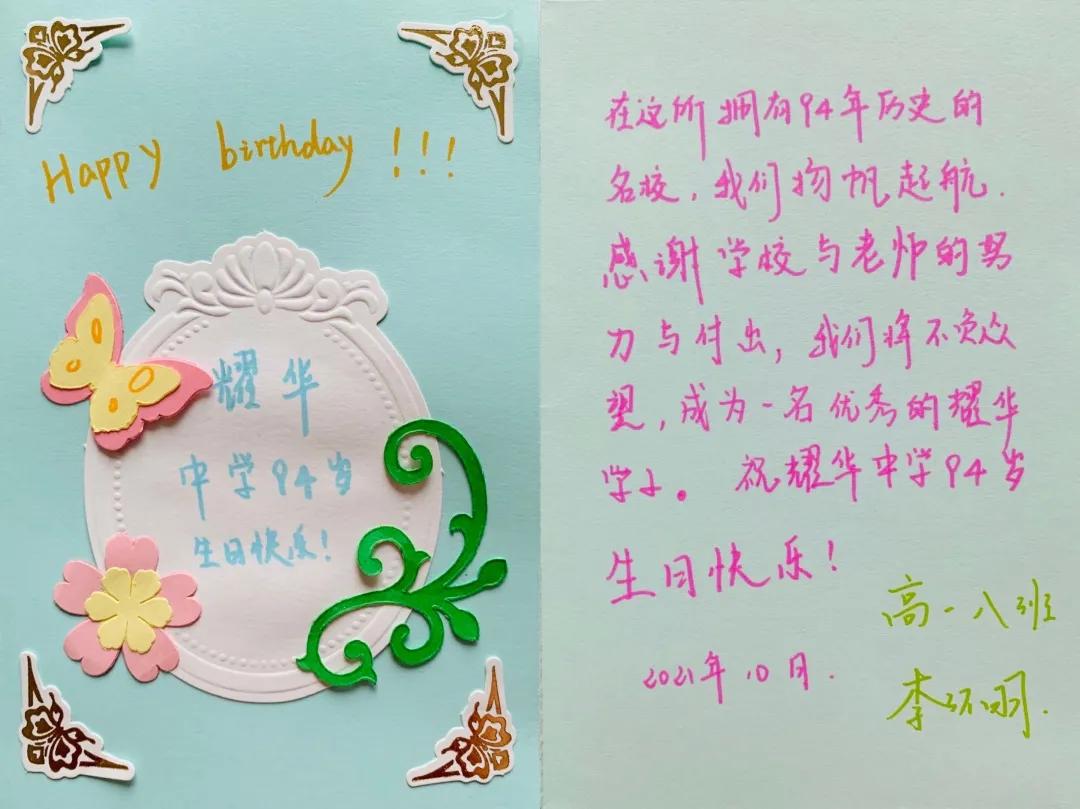 Happy birthday !!!
耀华
中学94岁
生日快乐!
在这所拥有94年历史的
名校,我们扬帆起航.
感谢学校与老师的努
力与付出,我们将不负众
望,成为一名优秀的耀华
学子。祝耀华中学94岁
生日快乐!
高一八班
2021年10月.
李环羽.